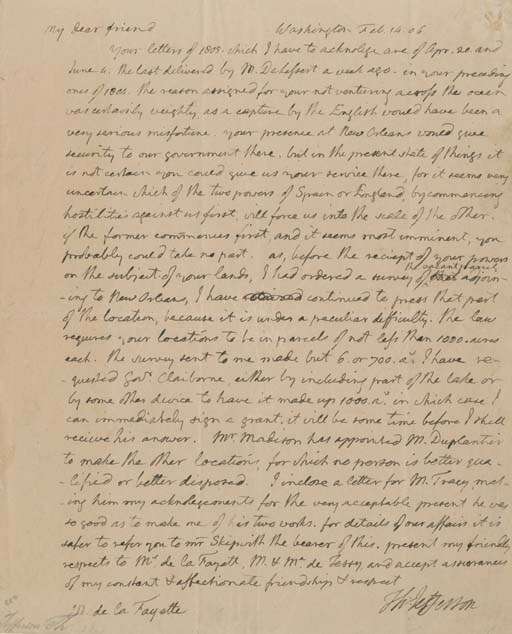 My dear friend Washington Feb. 14. 06
Your letters of 1805. which I have to acknolege are of Apr. 20. and
June 4. the last delivered by M. Delessert a week ago. in your preceding
ones of 1805. the reason assigned for your not venturing across the ocean
was certainly weighty, as a capture by the English would have been a
very serious misfortune. your presence at New Orleans would give
security to our government there. but in the present state of things it
is not certain you could give us your service there, for it seems very
uncertain which of the two powers of Spain or England, by commencing
hostilities against us first, will force us into the scale of the other.
if the former commences first, and it seems most imminent, you
probably could take no part. as, before the reciept of your powers
on the subject of your lands, I had ordered a survey of the vacant parcel adjoin-
-ing to New Orleans, I have continued to press that part
of the location, because it is under a peculiar difficulty. the law
requires your locations to be in parcels of not less than 1000. acres
each. the survey sent to me made but 6 or 700. as. I have re-
-quested Govr. Claiborne, either by including part of the lake or
by some other device to have it made up 1000. as. in which case I
can immediately sign a grant. it will be some time before I shall
recieve his answer. Mr. Madison has appointed M. Duplantier
to make the other locations, for which no person is better qua-
-lified or better disposed. I inclose a letter for M. Tracy, mak-
ing him my acknolegements for the very acceptable present he was
so good as to make me of his two works. for details of our affairs it is
safer to refer you to mr Skipwith the bearer of this. present my friendly
respects to Me. de la Fayette, M. & Me. de Tessy and accept assurances
of my constant & affectionate friendship & respect
Th: Jefferson
M. de la Fayette
Jefferson Th.